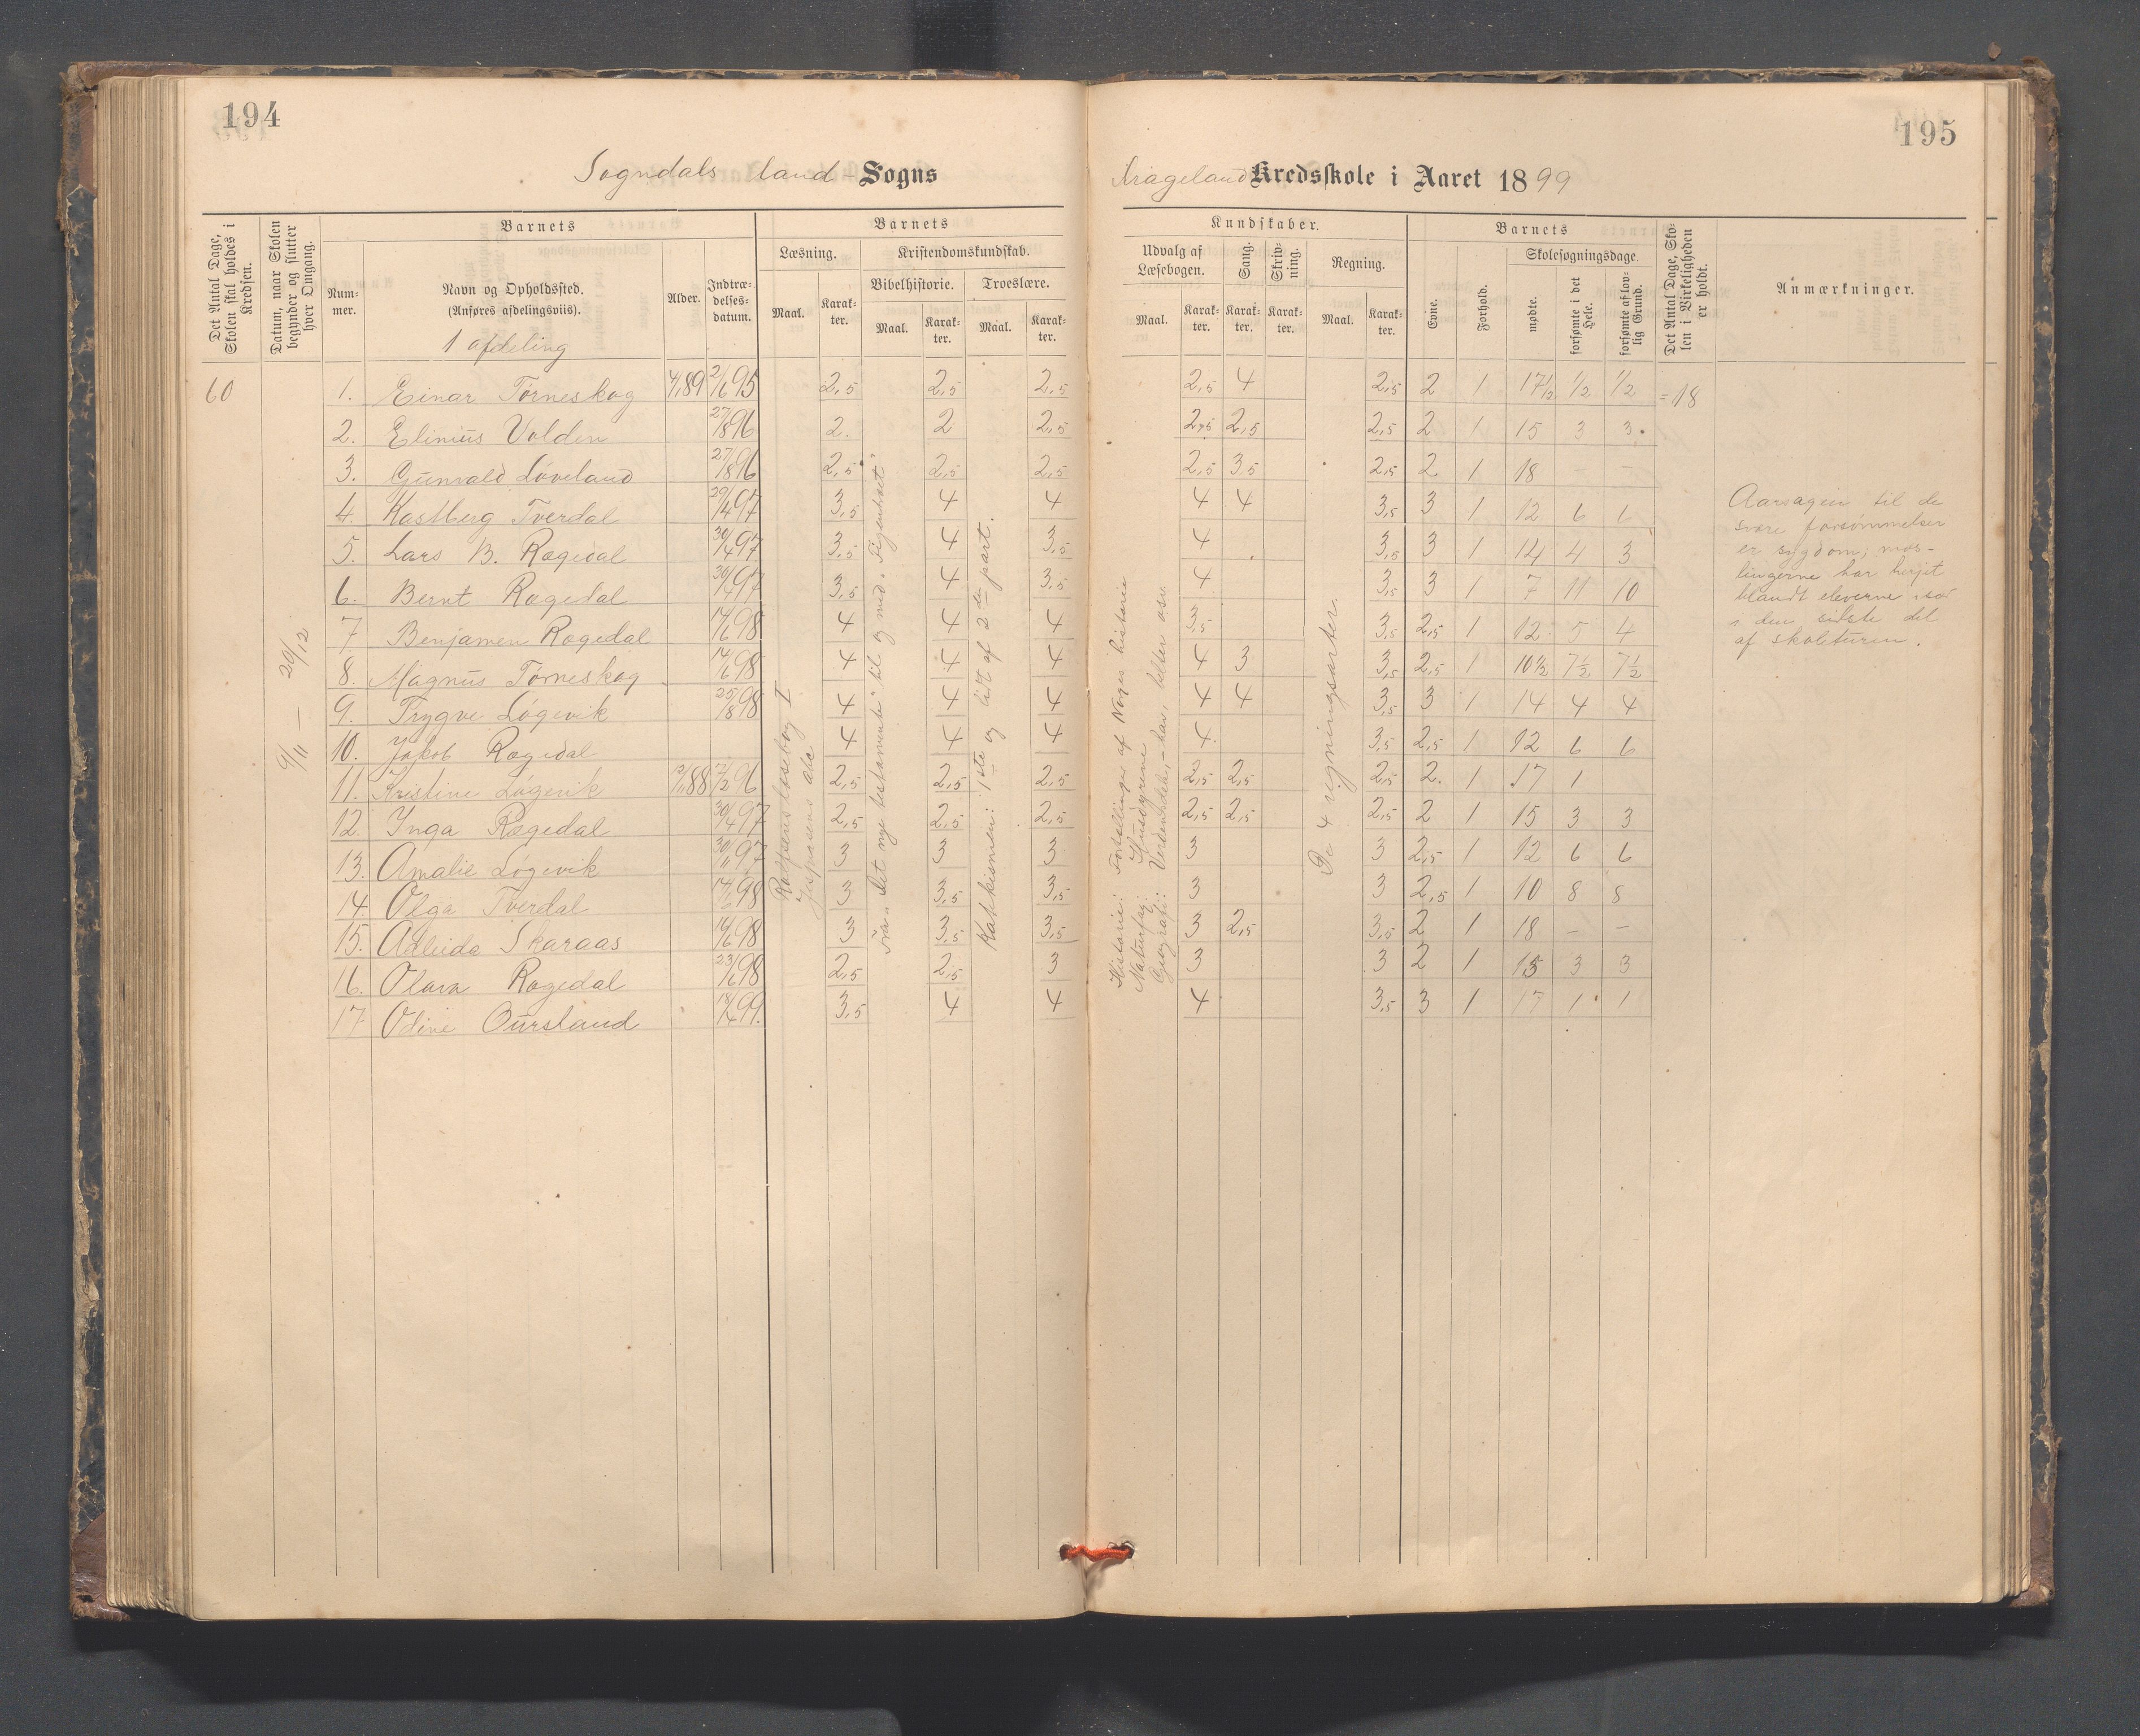 194
Sogndals land-Sogns
Det Antal Dage, Skolen skal holdes i Kredsen.
Datum, naar Skolen begynder og slutter hver Omgang.
Barnets
Num-mer.
Navn og Opholdssted.
(Anføres afdelingsviis).
1 afdeling
Alder.
Indtræ-delses-datum.
Barnets
Læsning.
Kristendomskundskab.
Bibelhistorie.
Troeslære.
Maal.
Karak-ter.
Maal.
Karak-ter.
Maal.
Karak-ter.
60
9/11 — 20/12
1. Einar Törneskog 4/189 2/695 2,5 2,5 2,5
2. Elinius Volden 27/896 2. 2 2,5
3. Gunvald Löveland 27/896 2,5 2,5 2,5
4. Kastberg Tverdal 29/497 3,5 4 4
5. Lars B. Rægedal 30/497 3,5 4 3,5
6. Bernt Rægedal 30/497 3,5 4 3,5
7 Benjamen Rogedal 14/698 4 4 4
8. Magnus Törneskog 14/698 4 4 4
9. Trygve Lögevik 25/898 4 4 4
10. Jakob Rægedal 4 4 4
11. Kristine Lögevik 88 7/296 2,5 2,5 2,5
12. Inga Rægedal 30/497 2,5 2,5 2,5
13. Amalie Lögevik 97 3 3 3
14. Olga Tverdal 14/698 3 3,5 3,5
15. Adleida Skaraas 14/698 3 3,5 3,5
16. Olava Rogedal 23/98 2,5 2,5 3
17 Odine Oursland 18/499. 3,5 4 4
læsebog I
Jespersens abc
Fra „Det nye testamente" til og med „Figentræet"
Katekismen: 1ste og lidt af 2den part.
195
Krageland Kredsskole i Aaret 1899
Kundskaber.
Udvalg af Læsebogen.
Sang.
Skriv-ning.
Regning.
Maal.
Karak-ter.
Karak-ter.
Karak-ter.
Maal.
Karak-ter.
Barnets
Evne.
Forhold.
Skolesøgningsdage.
mødte.
forsømte i det Hele.
forsømte af lov-lig Grund.
Det Antal Dage, Sko-len i Virkeligheden er holdt.
Anmærkninger.
2,5 4 2,5 2 1 17 1/2 1/2 1/2 =18
2,5 2,5 2,5 2 1 15 3 3.
2,5 3,5 2,5 2 1 18 – –
4 4 3,5 3 1 12 6 6
4 3,5 3 1 14 4 3
4 3,5 3 1 7 11 10
3,5 3,5 2,5 1 12 5 4
4 3 3,5 2,5 1 10 1/2 7 1/2 7 1/2
4 4 3,5 3 1 14 4 4
4 3,5 2,5 1 12 6 6
2,5 2,5 2,5 2. 1 17 1
2,5 2,5 2,5 2 1 15 3 3
3 3 2,5 1 12 6 6
3 3 2,5 1 10 8 8
3 2,5 3,5 2 1 18 – –
3 3 2 1 15 3 3
4 3,5 3 1 17 1 1
Historie: Fortællinger af Norges historie
Naturfag: Husdyrene
Geografi: Verdensdele, – hav, lidt
De 4 regningsarter.
Aarsagen til de
svære forsömmelser
er sygdom, mæs-
lingerne har herjet
blandt eleverne især
i den sidste del
af skoleturen.